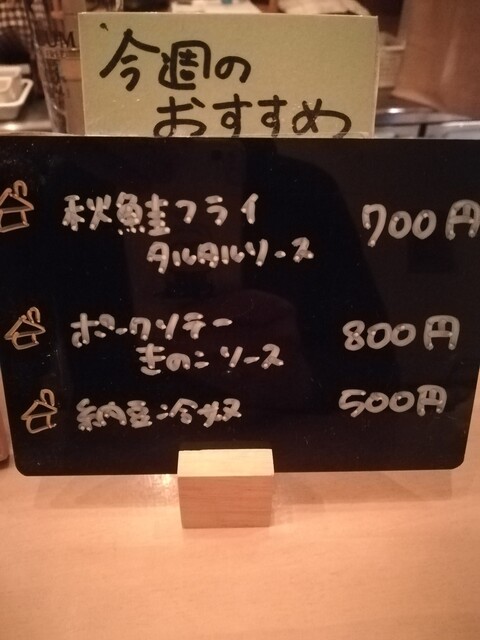 今週の
おすすめ
秋鮭フライ 700円
タルタルソース
ポークソテー 800円
きのこソース
納豆冷奴 500円